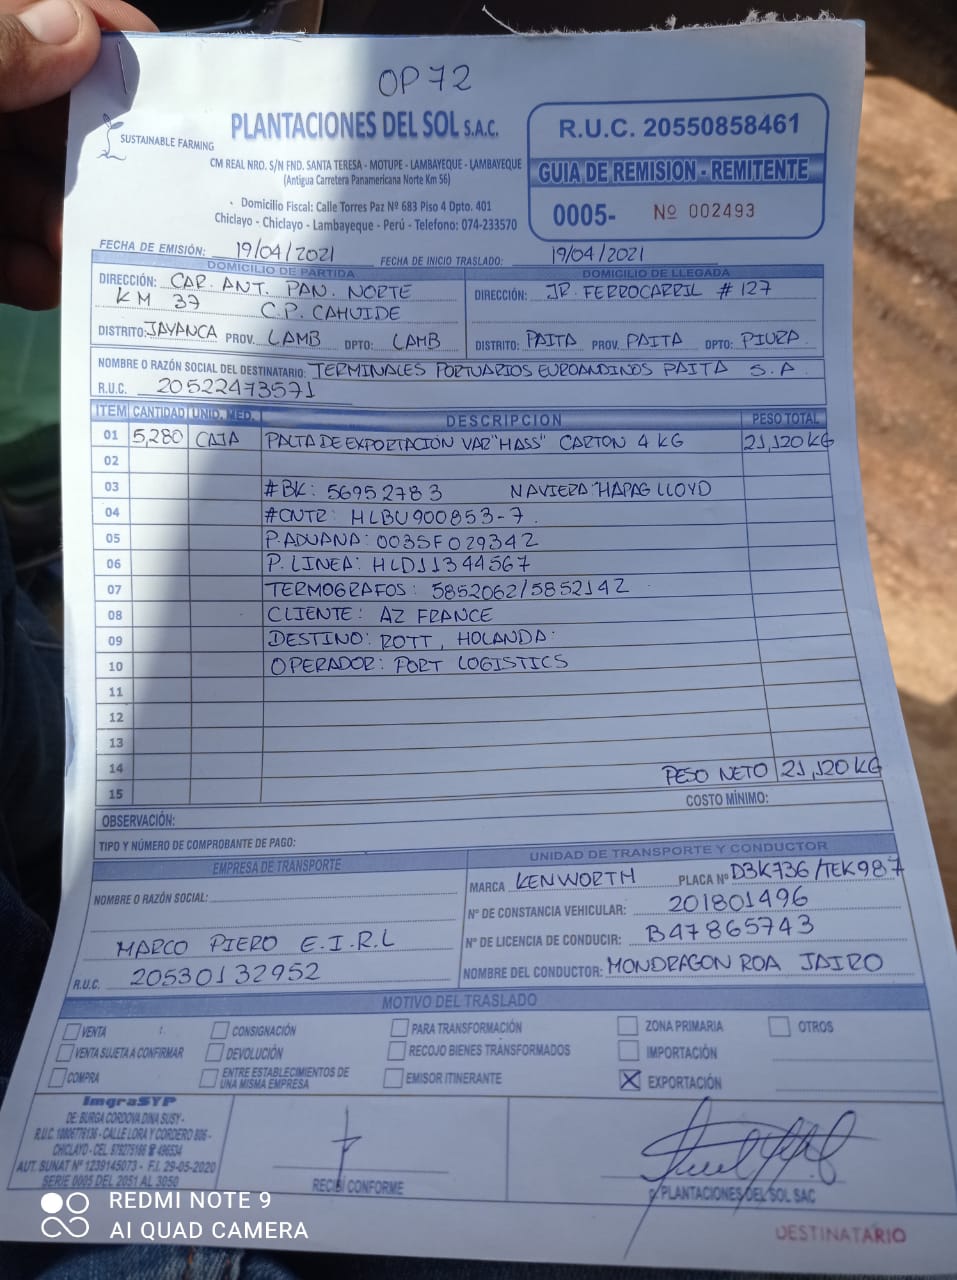 OP 72
SUSTAINABLE FARMING
PLANTACIONES DEL SOL S.A.C.
CM REAL NRO. S/N FND. SANTA TERESA - MOTUPE - LAMBAYEQUE - LAMBAYEQUE
(Antigua Carretera Panamericana Norte Km 56)
Domicilio Fiscal: Calle Torres Paz Nº 683 Piso 4 Dpto. 401
Chiclayo - Chiclayo - Lambayeque - Perú - Telefono: 074-233570
R.U.C. 20550858461
GUIA DE REMISION - REMITENTE
0005- Nº 002493
FECHA DE EMISIÓN: 19/04/2021 FECHA DE INICIO TRASLADO: 19/04/2021
DOMICILIO DE PARTIDA
DIRECCIÓN: CAR. ANT. PAN. NORTE
KM 37 C.P. CAHUIDE
DISTRITO: JAYANCA PROV. LAMB DPTO: LAMB
DOMICILIO DE LLEGADA
DIRECCIÓN: JR. FERROCARRIL # 127
DISTRITO: PAITA PROV. PAITA DPTO: PIURA
NOMBRE O RAZÓN SOCIAL DEL DESTINATARIO: TERMINALES PORTUARIOS EUROANDINOS PAITA S.A
R.U.C. 20522473571
ITEM CANTIDAD UNID. MED. DESCRIPCION PESO TOTAL
01 5,280 CAJA PALTA DE EXPORTACIÓN VAR "HASS" CARTON 4 KG 21,120 KG
02
03 #BK: 56952783 NAVIERA HAPAG LLOYD
04 #CNTR: HLBU900853-7.
05 P. ADUANA: 0035F029342
06 P. LINEA: HLD11344567
07 TERMOGRAFOS: 5852062/5852142
08 CLIENTE: AZ FRANCE
09 DESTINO: ROTT, HOLANDA.
10 OPERADOR: FORT LOGISTICS
11
12
13
14 PESO NETO 21,120 KG
15 COSTO MÍNIMO:
OBSERVACIÓN:
TIPO Y NÚMERO DE COMPROBANTE DE PAGO:
EMPRESA DE TRANSPORTE
NOMBRE O RAZÓN SOCIAL:
MARCO PIERO E.I.R.L
R.U.C. 20530132952
UNIDAD DE TRANSPORTE Y CONDUCTOR
MARCA KENWORTH PLACA Nº D3K736/TEK987
Nº DE CONSTANCIA VEHICULAR: 201801496
Nº DE LICENCIA DE CONDUCIR: B47865743
NOMBRE DEL CONDUCTOR: MONDRAGON ROA JAIRO
MOTIVO DEL TRASLADO
VENTA CONSIGNACIÓN PARA TRANSFORMACIÓN ZONA PRIMARIA OTROS
VENTA SUJETA A CONFIRMAR DEVOLUCIÓN RECOJO BIENES TRANSFORMADOS IMPORTACIÓN
COMPRA ENTRE ESTABLECIMIENTOS DE UNA MISMA EMPRESA EMISOR ITINERANTE X EXPORTACIÓN
ImgraSYP
DE: BURGA CORDOVA DINA SUSY -
R.U.C. 10006776136 - CALLE LORA Y CORDERO 806 -
CHICLAYO - CEL. 979275166 ☎ 496534
AUT. SUNAT Nº 1239145073 - F.I. 29-05-2020
SERIE 0005 DEL 2051 AL 3050
RECIBÍ CONFORME
p. PLANTACIONES DEL SOL SAC
DESTINATARIO
REDMI NOTE 9
AI QUAD CAMERA